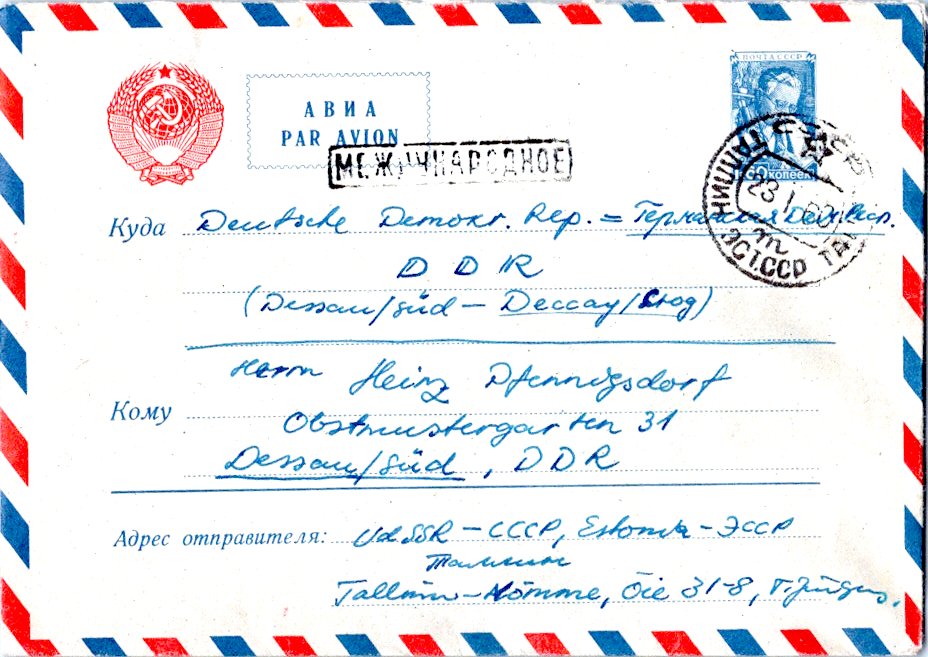 ПОЧТА СССР
АВИА
PAR AVION
МЕЖДУНАРОДНОЕ
КОПЕЕК
ТАЛЛИН
23 I
ЭСТ.ССР
Куда Deutsche Demokr. Rep. =
D D R
(Dessau/süd – Дессау/Сюд)
Кому Herrn Heinz Pfennigsdorf
Obstmustergarten 31
Dessau/süd, DDR
Адрес отправителя: UdSSR – СССР, Estonia – ЭССР
Таллин
Tallinn–Nõmme, Õie 31-8,